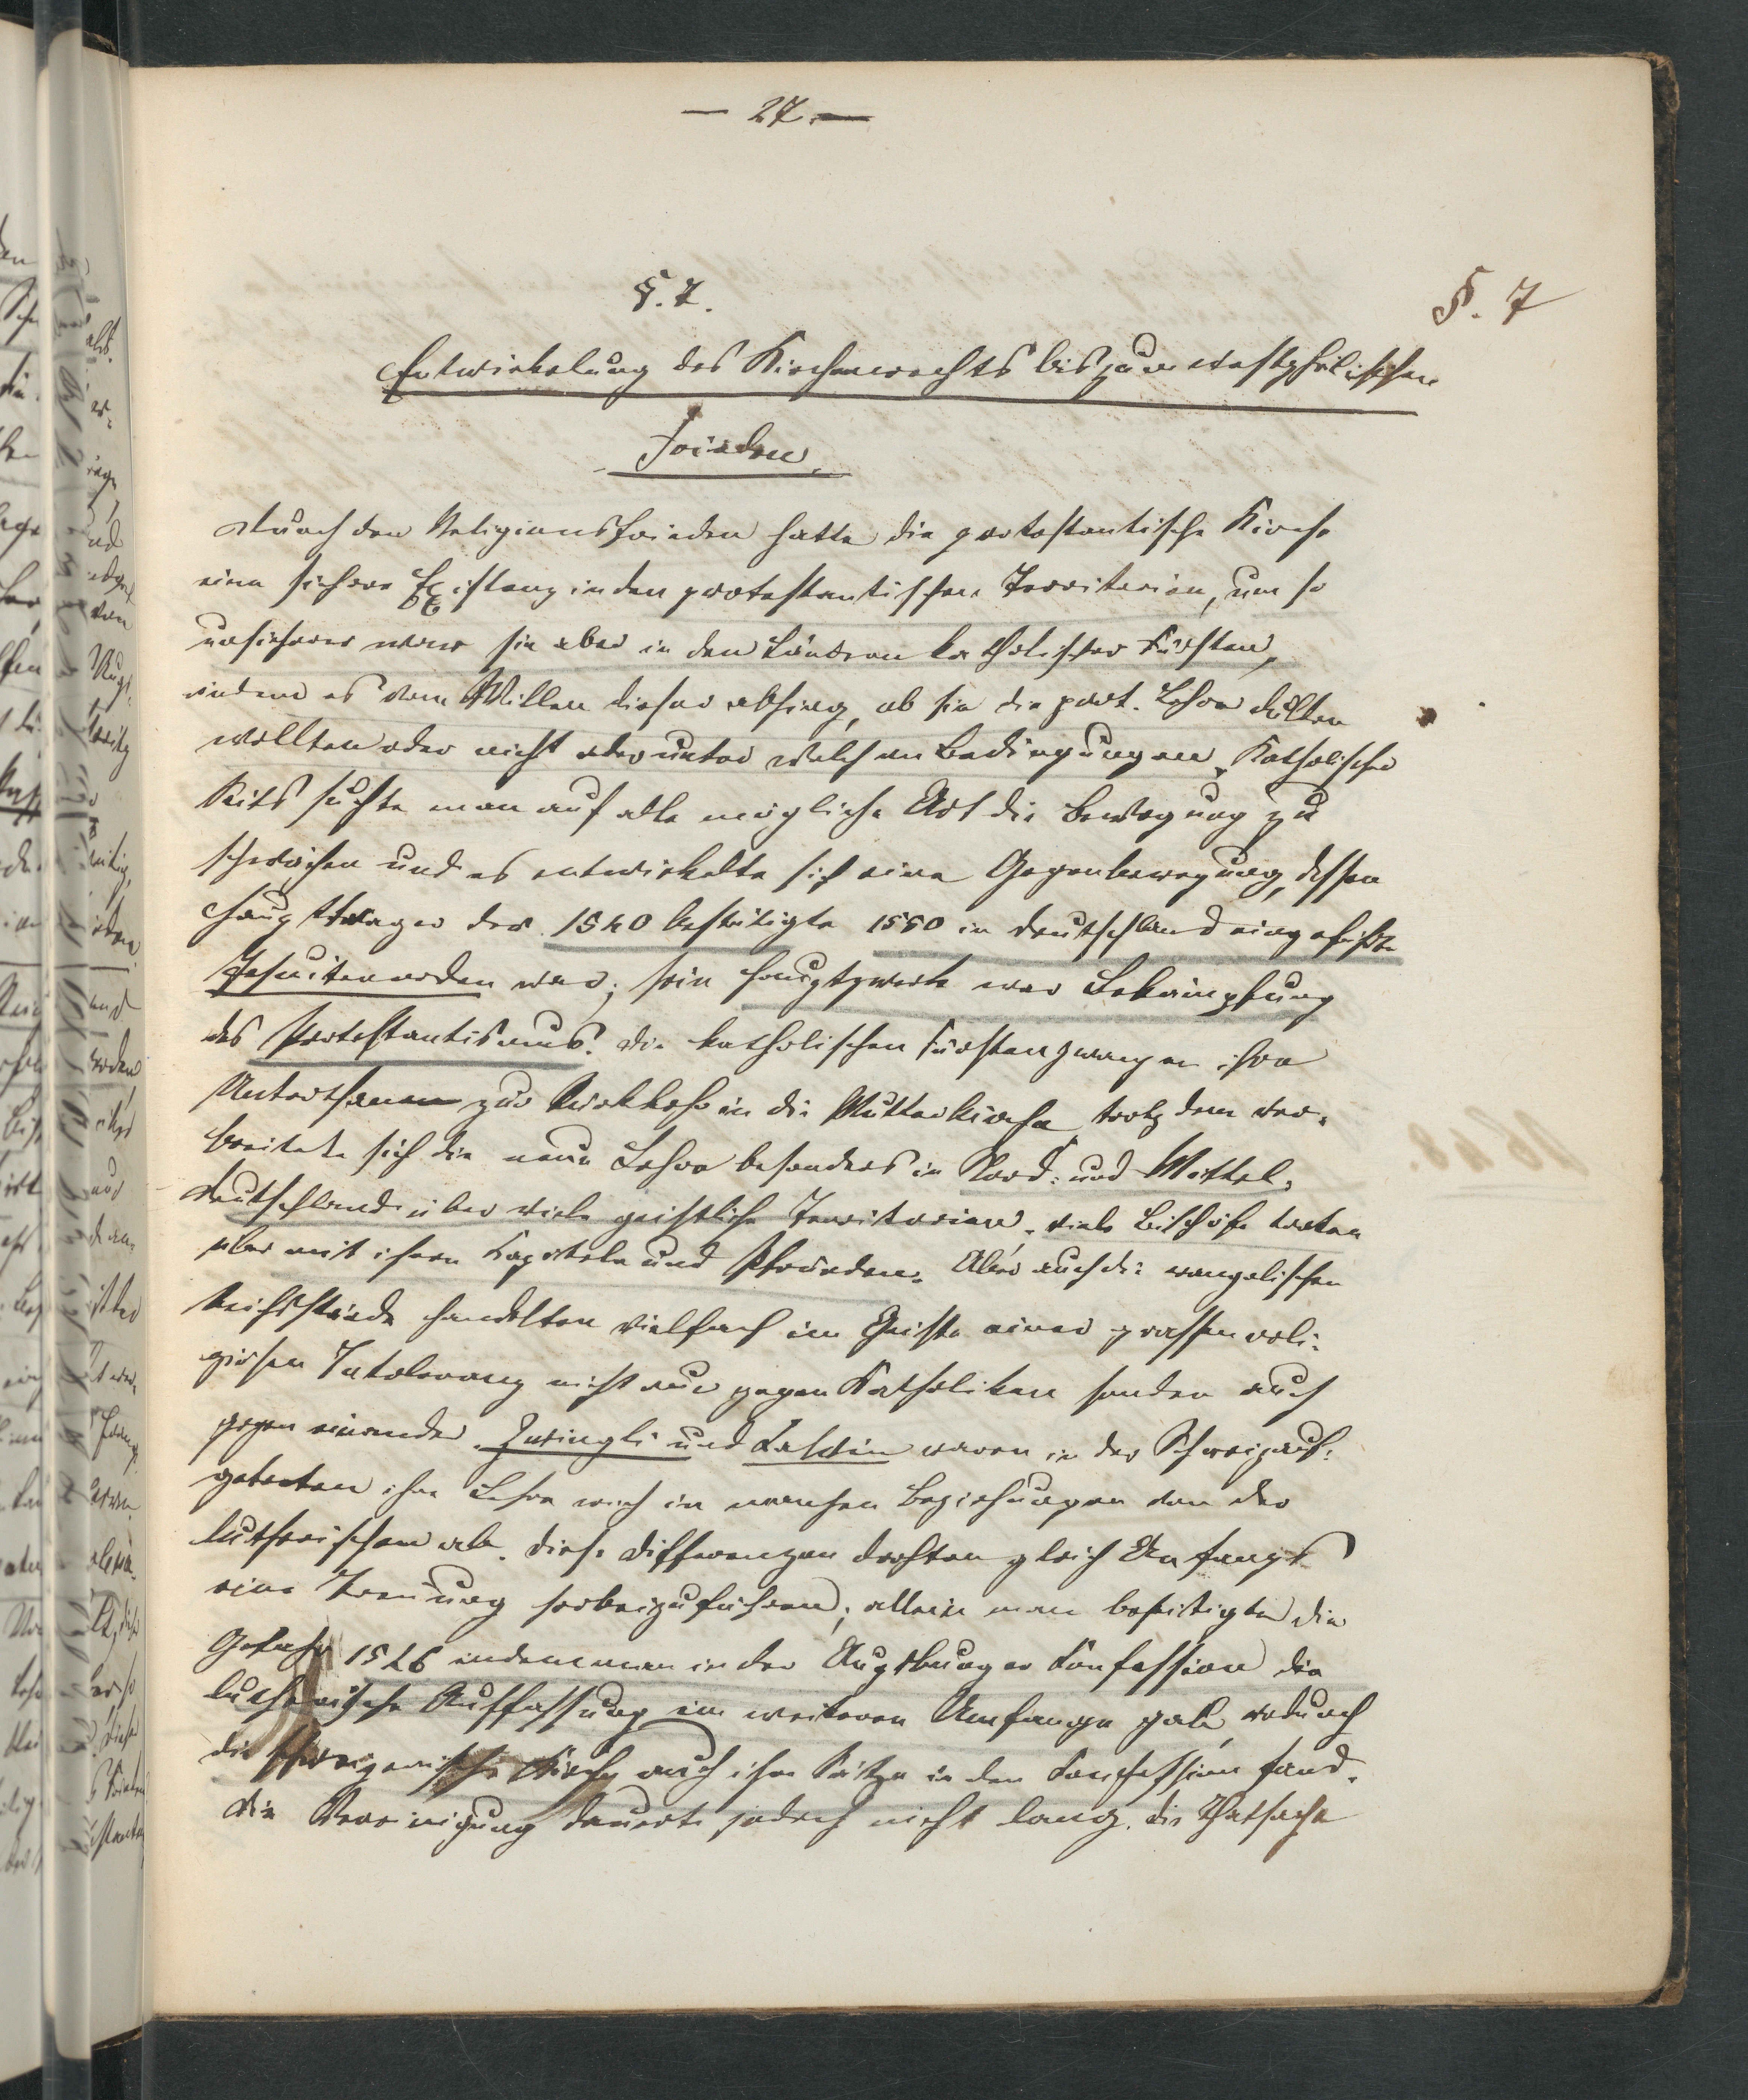 — 27. —
§. 7.
§. 7
Entwickelung des Kirchenrechts bis zum westphälischen
Frieden.
Durch den Religionsfrieden hatte die protestantische Kirche
eine sichere Existenz in den protestantischen Territorien, um so
unsicherer war sie aber in den Ländern katholischer Fürsten,
indem es vom Willen dieser abhing, ob sie die prot. Lehre dulten
wollten oder nicht oder unter welchen Bedingungen. Katholischer
Seits suchte man auf alle mögliche Art die Bewegung zu
schwächen und es entwickelte sich eine Gegenbewegung, dessen
Hauptträger der 1540 bestätigte 1550 in Deutschland eingeführte
Jesuitenorden war; sein Hauptzweck war Bekämpfung
des Protestantismus. Die katholischen Fürsten zwangen ihre
Unterthanen zur Rückkehr in die Mutterkirche trotz dem ver-
breitete sich die neue Lehre besonders in Nord- und Mittel-
deutschland über viele geistliche Territorien, viele Bischöfe traten
über mit ihren Kapiteln und Pfründen. Aber auch die evangelischen
Reichsstände handelten vielfach im Geiste einer grossen reli-
giösen Intoleranz nicht nur gegen Katholiken sonder auch
gegen einander. Zwingli und Calvin waren in der Schweiz auf-
getreten ihre Lehre wich in manchen Beziehungen von der
lutherischen ab. Diese Differenzen drohten gleich Anfangs
eine Trennung herbeizuführen; allein man beseitigte die
Gefahr 1546 indem man in der Augsburger Confession die
lutherische Auffassung im weiteren Umfange gab, wodurch
die schweizerische Kirche auch ihre Sätze in den Confession fand.
Die Vereinigung dauerte jedoch nicht lang, die Thatsache